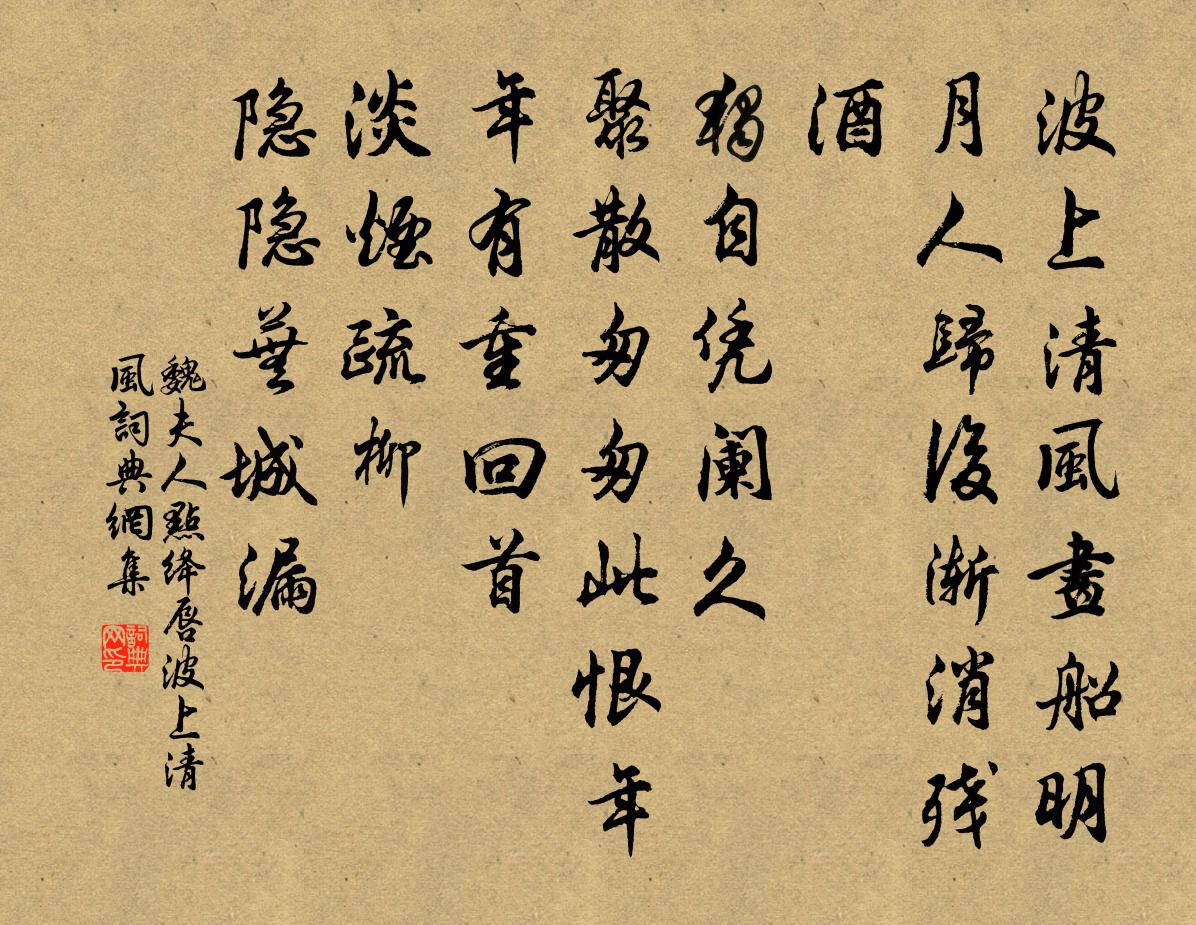 波上清風畫船明
月人歸後渐消残
酒
獨自凭阑久
聚散匆匆此恨年
年有重回首
淡煙疏柳
隐隐蕪城漏
魏夫人點绛唇波上清
風詞典網集
詞典网印